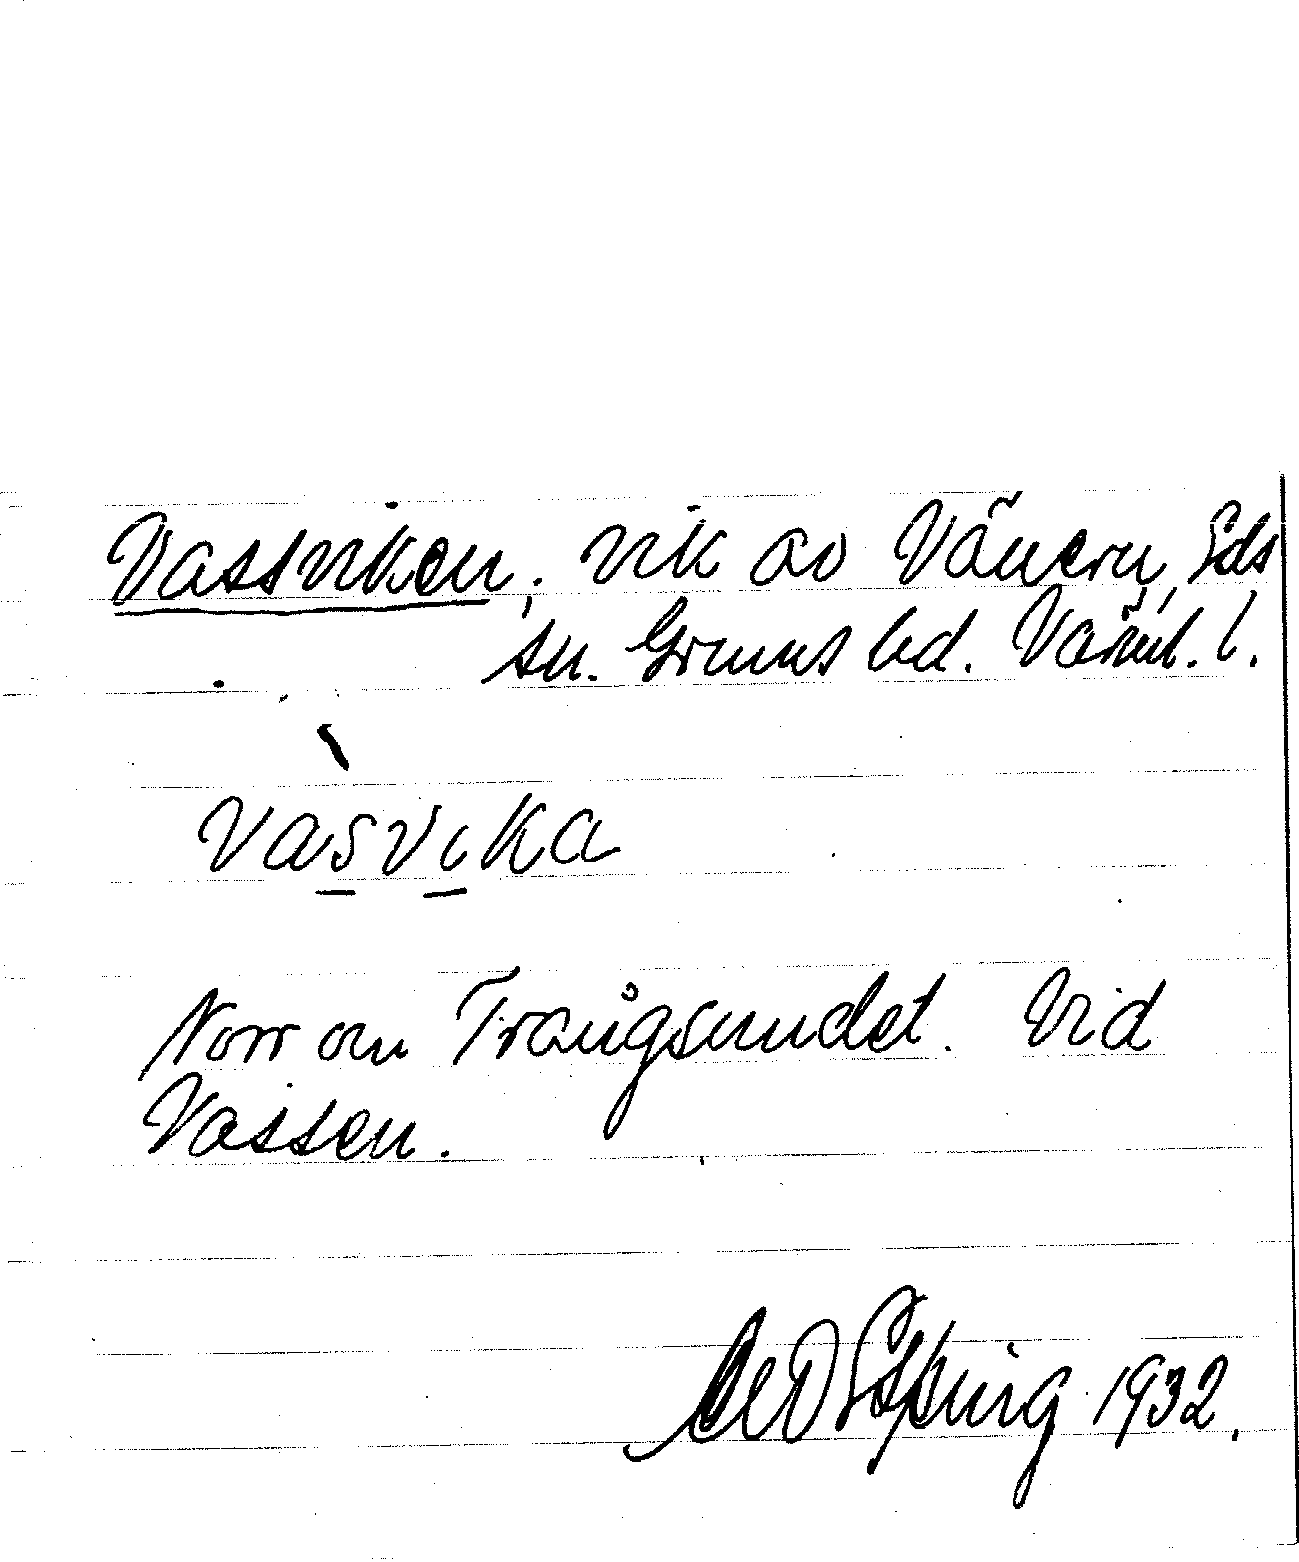 Vassviken; vik av Vänern, Eds
sn. Grums hd. Värml. l.
vasvika
Norr om Trångsundet. Vid
Vassen.
1932.